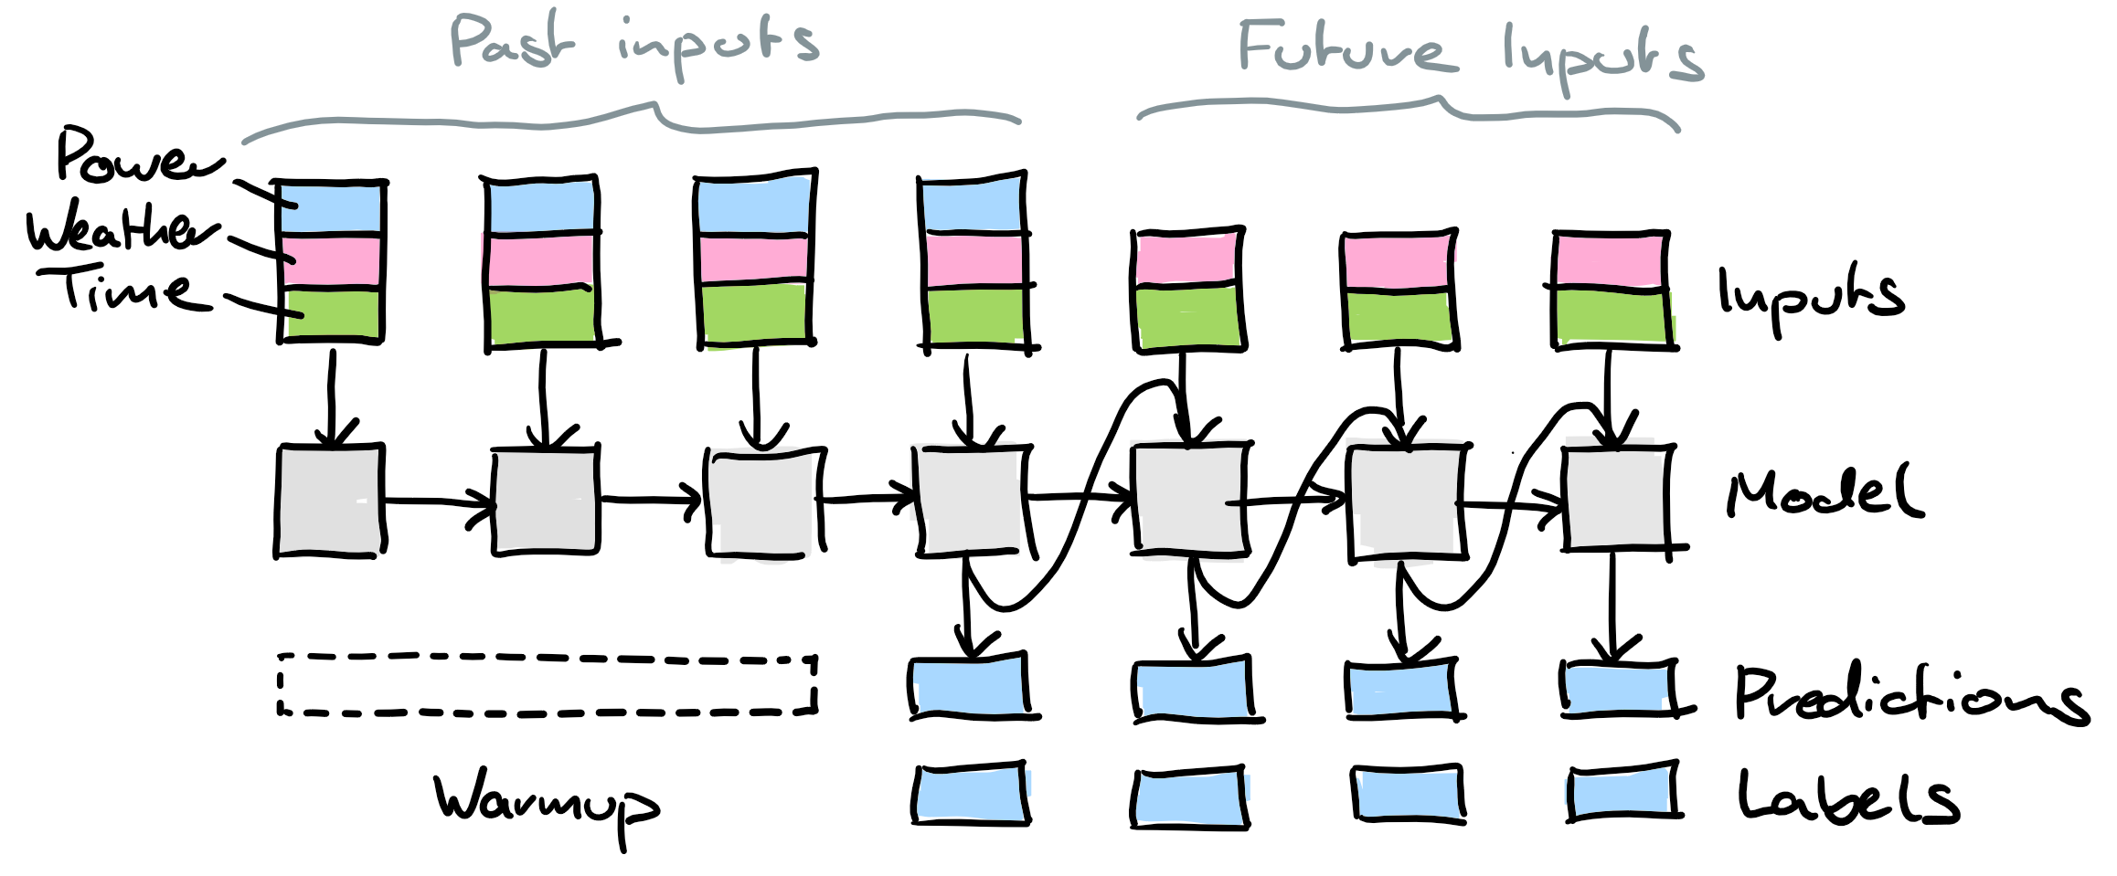 Past inputs
Future Inputs
Power
Weather
Time
Inputs
Model
Predictions
Warmup
Labels